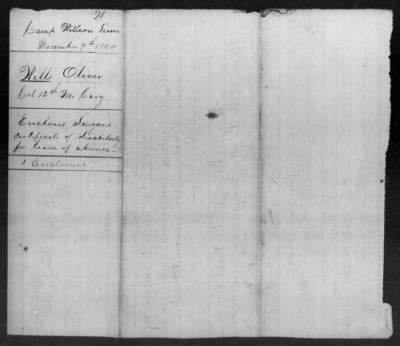 Camp Willson Tenn
December 9th 1864
Wells Oliver
Col 12th Mo Cavy
Encloses Surgeons
certificate of disability
for leave of absence—
1 Enclosure